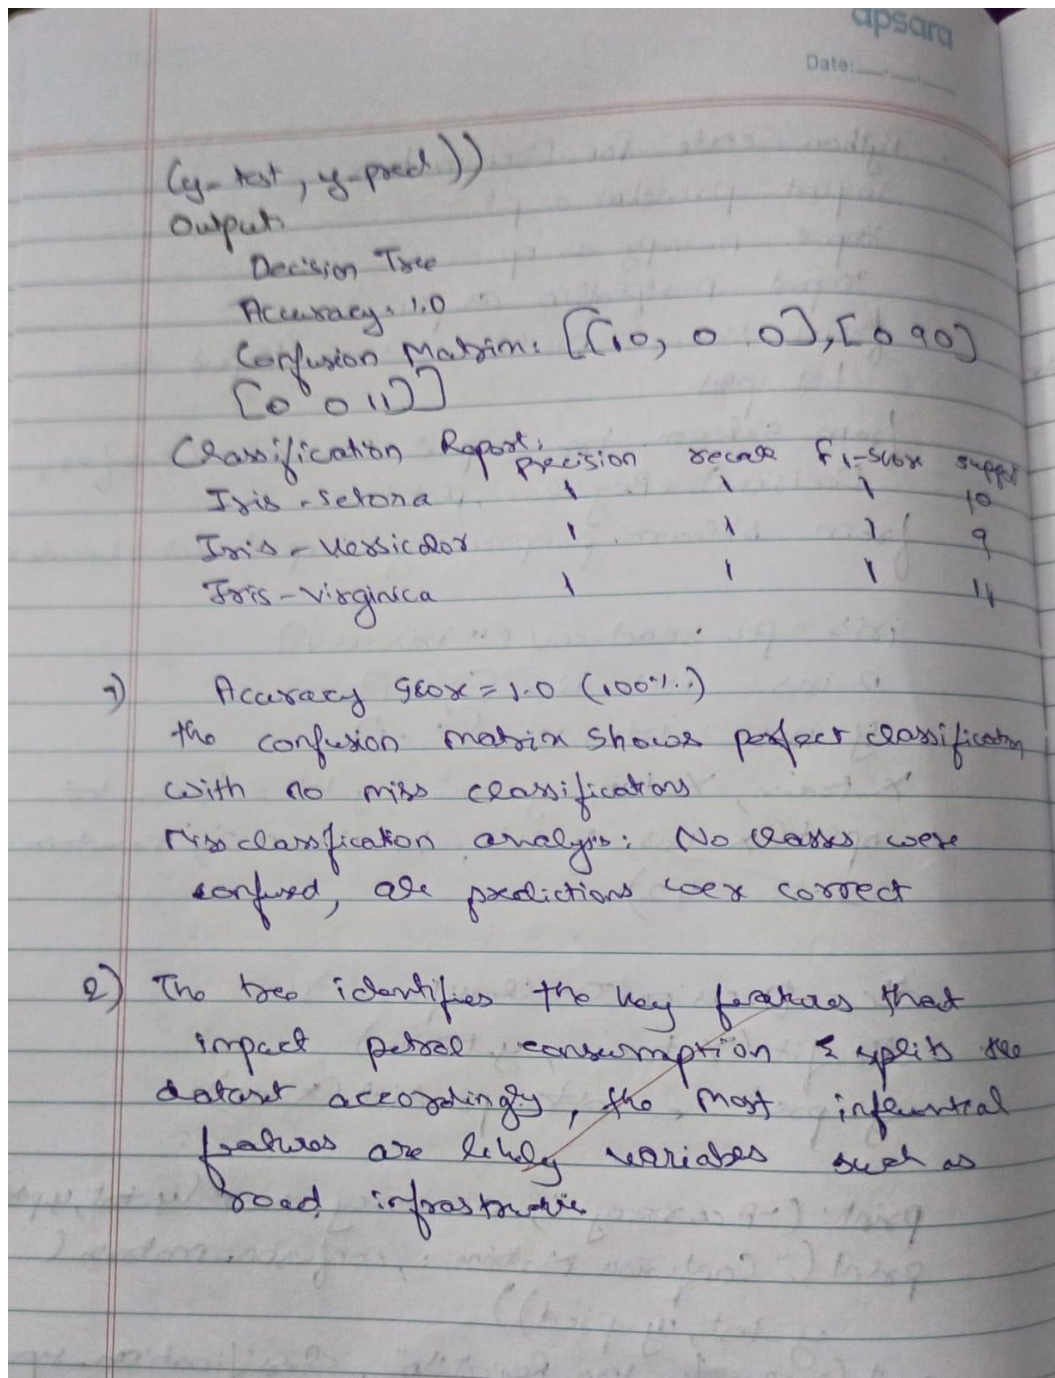 apsara
Date:
(y-test, y-pred))
Output:
Decision Tree
Accuracy: 1.0
Confusion Matrix: [[10, 0 0], [0 9 0]
[0 0 11]]
Classification Report:
precision recall f1-score support
Iris-Setosa 1 1 1 10
Iris-Versicolor 1 1 1 9
Iris-Virginica 1 1 1 11
1) Accuracy Score = 1.0 (100%)
the confusion matrix shows perfect classification
with no miss classifications
Missclassification analysis: No classes were
confused, all predictions were correct
2) The tree identifies the key features that
impact petrol consumption & splits the
dataset accordingly, the most influential
features are likely variables such as
road infrastructure